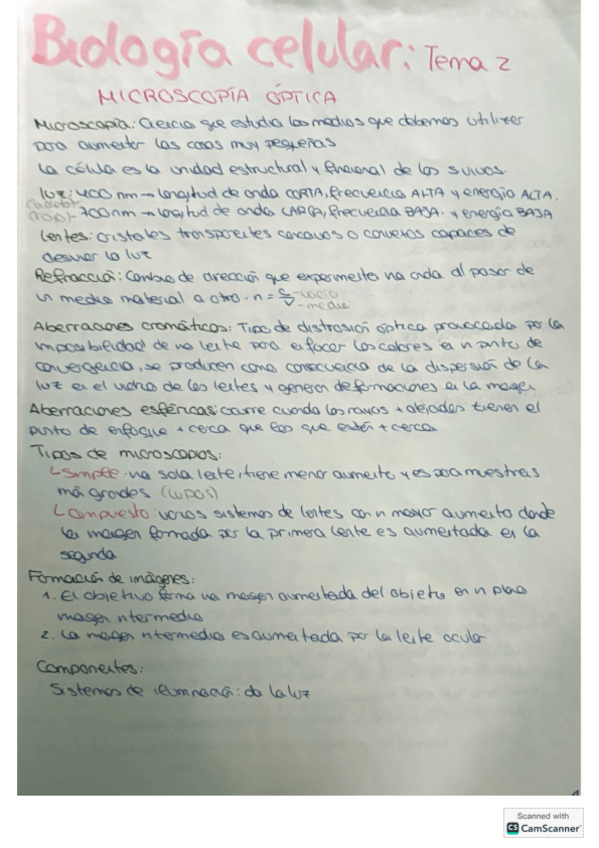 Biología celular: Tema 2
MICROSCOPÍA ÓPTICA
Microscopía: Ciencia que estudia los medios que debemos utilizar
para aumentar las cosas muy pequeñas
La célula es la unidad estructural y funcional de los s.vivos.
luz: 400 nm → longitud de onda CORTA, frecuencia ALTA y energía ALTA.
700 nm → longitud de onda LARGA, frecuencia BAJA y energía BAJA
Lentes: cristales transparentes cóncavos o convexos capaces de
desviar la luz
Refracción: Cambio de dirección que experimenta una onda al pasar de
un medio material a otro. n = c/v -vacío -medio
Aberraciones cromáticas: Tipo de distrosión óptica provocada por la
imposibilidad de una lente para enfocar los colores en un punto de
convergencia, se producen como consecuencia de la dispersión de la
luz en el vidrio de las lentes y generan deformaciones en la imagen
Aberraciones esféricas: ocurre cuando los rayos + alejados tienen el
punto de enfoque + cerca que los que están + cerca
Tipos de microscopios:
↳ Simple: una sola lente, tiene menor aumento y es para muestras
más grandes (lupas)
↳ Compuesto: varios sistemas de lentes con un mayor aumento donde
la imagen formada por la primera lente es aumentada en la
segunda
Formación de imágenes:
1. El objetivo forma una imagen aumentada del objeto en un plano
imagen intermedio
2. La imagen intermedia es aumentada por la lente ocular
Componentes:
Sistemas de iluminación: da la luz
Scanned with
CS CamScanner